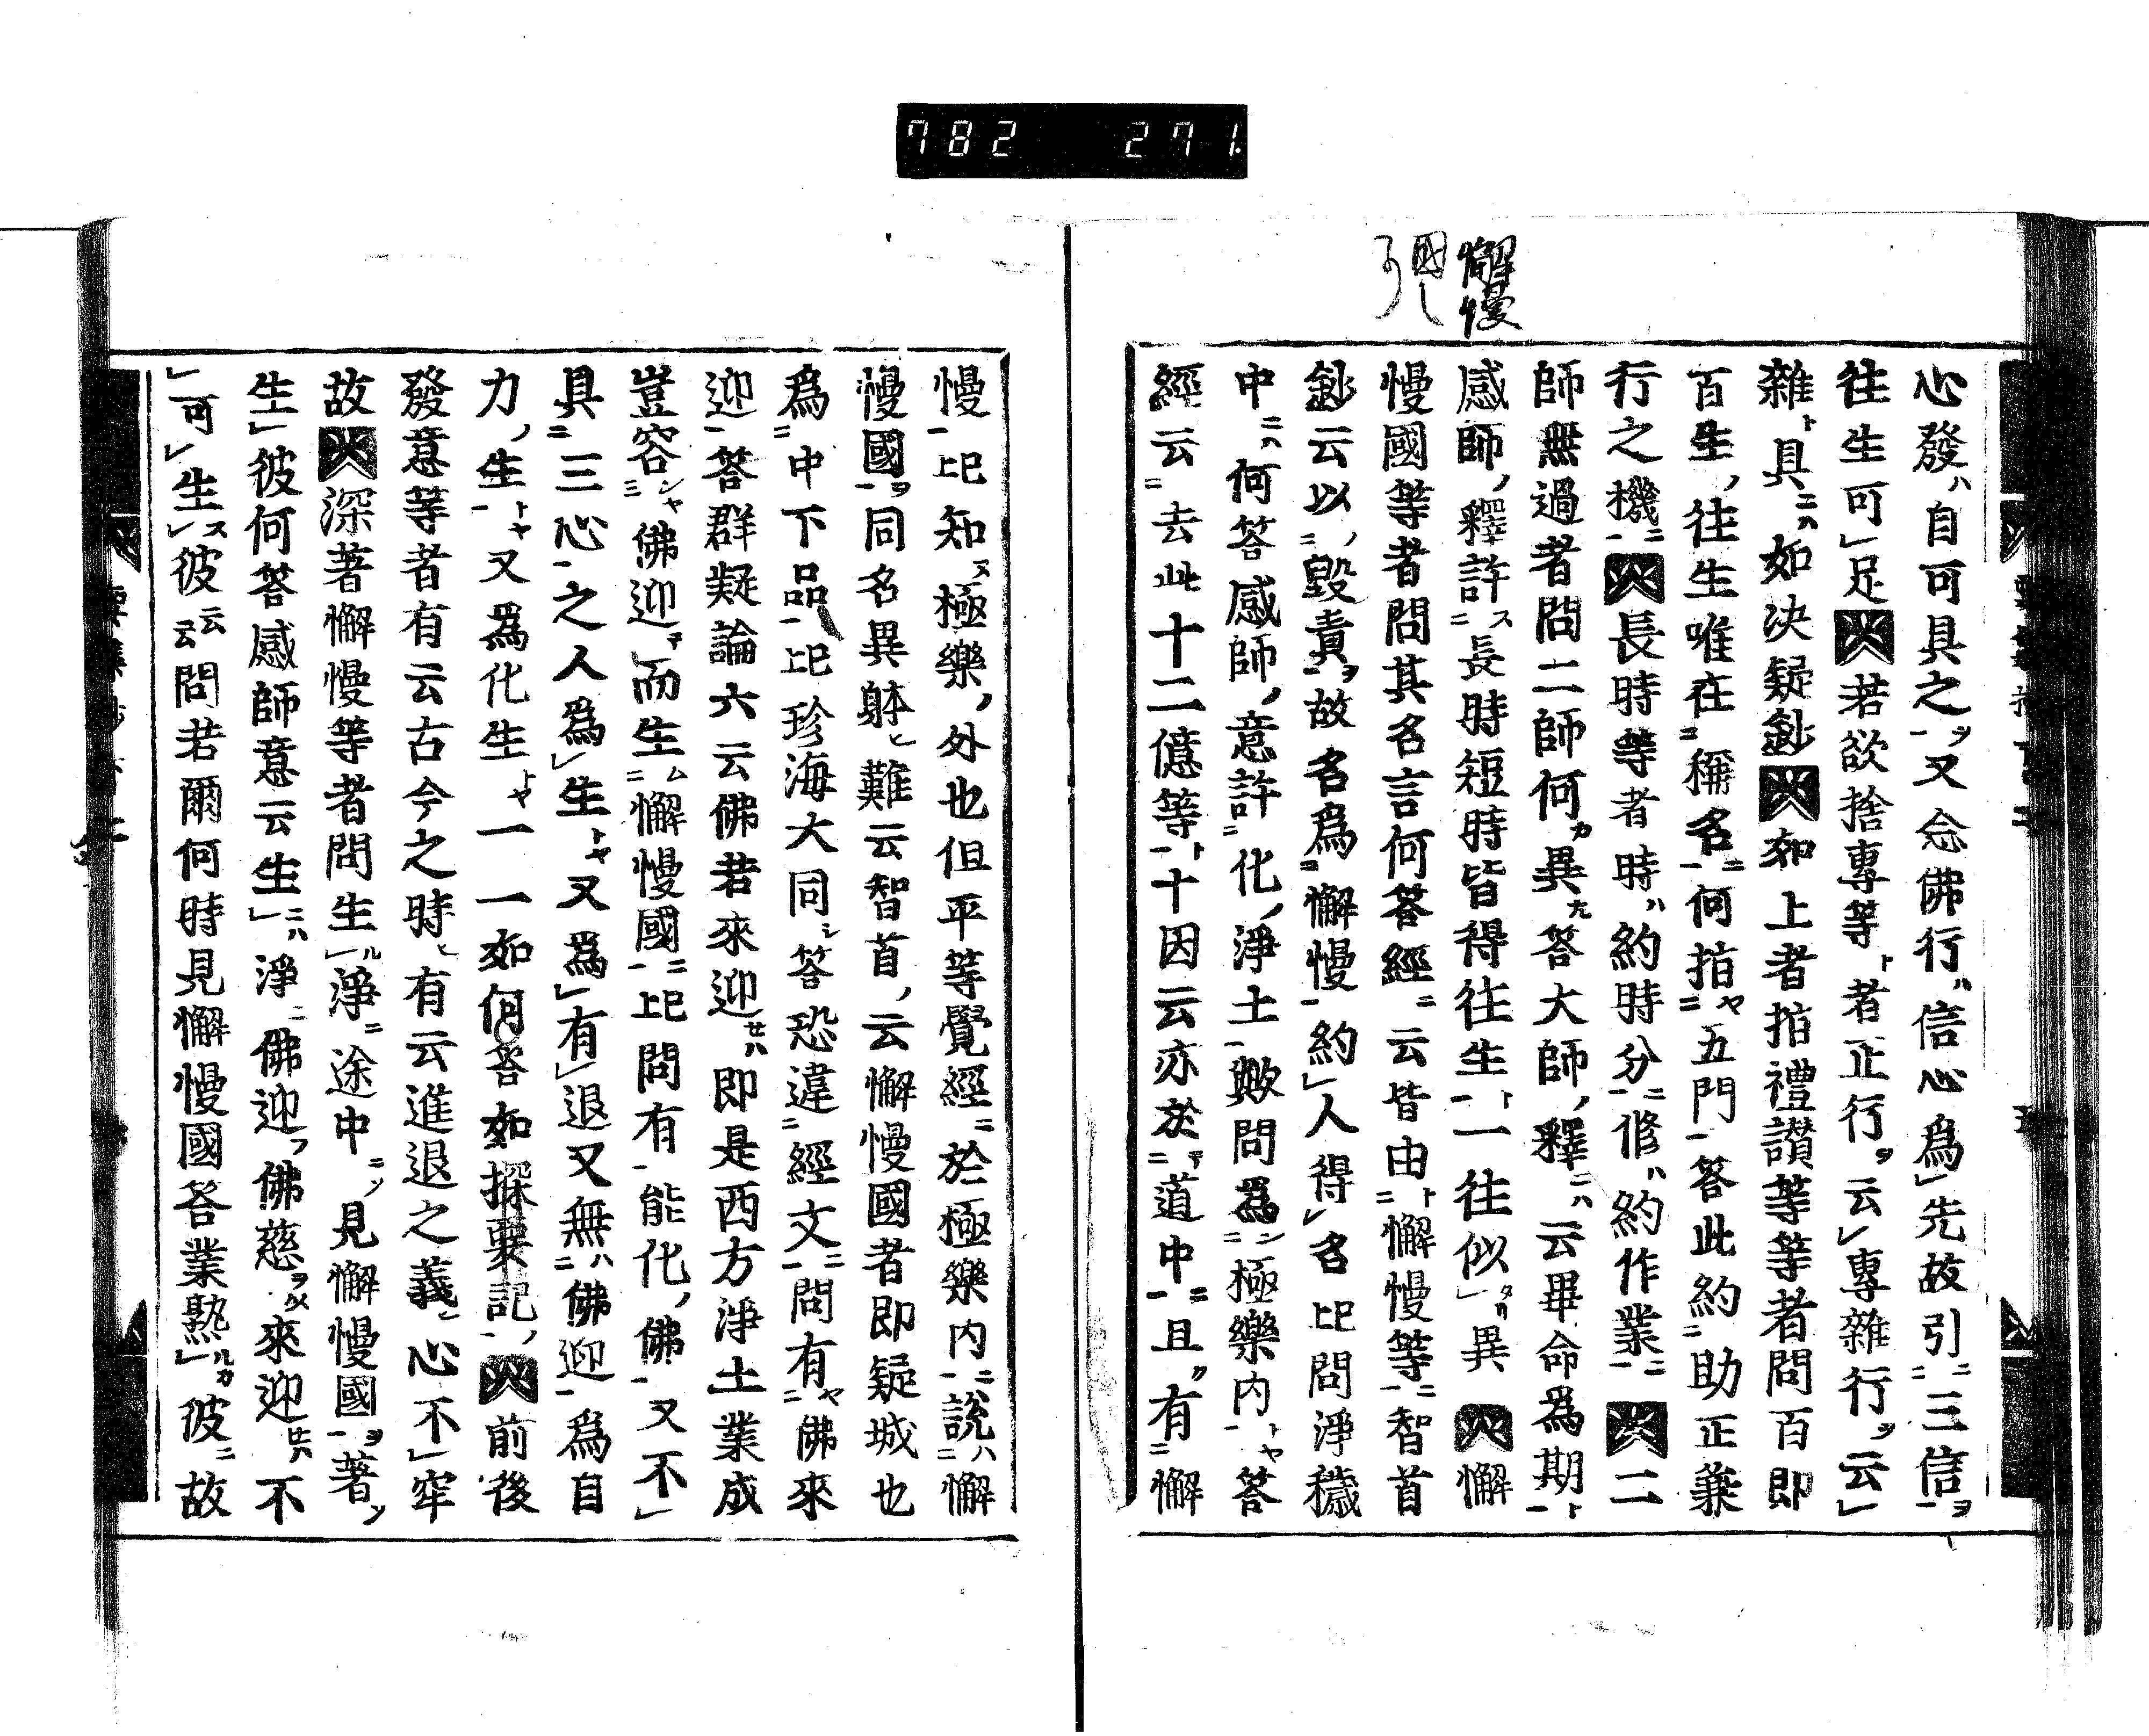 782 271.
懈慢
國
心發ハ自可具之ヲ又念佛行ハ信心爲先故引三信ヲ
往生可足若欲捨專等ト者正行ヲ云專雜行ヲ云
雜ト具ニハ如決疑鈔如上者指禮讃等等者問百即
百生往生唯在稱名ニ何指ヤ五門答此約助正兼
行之機ニ長時等者時ハ約時分ニ修ハ約作業ニ二
師無過者問二師何カ異ナル答大師釋ニハ云畢命爲期ト
感師釋許ス長時短時皆得往生ト一往似タリ異懈
慢國等者問其名言何答經ニ云皆由ト懈慢等ニ智首
鈔云以毀責ヲ故名爲懈慢約人得名比問淨穢
中ニハ何答感師意許化淨土歟問爲シ極樂内トヤ答
經云去此十二億等ト十因云亦於道中ニ且有懈
慢比知ヌ極樂外也但平等覺經ニ於極樂内ニ說ハ懈
慢國ヲ同名異躰ヒ難云智首云懈慢國者即疑城也
爲中下品比珍海大同シ答恐違經文ニ問有ヤ佛來
迎答群疑論六云佛若來迎セハ即是西方淨土業成
豈容シヤ佛迎ヲ而生ム懈慢國ニ比問有能化佛又不
具三心之人爲生トヤ又爲有退又無ハ佛迎爲自
力生トヤ又爲化生トヤ一一如何答如探要記前後
發意等者有云古今之時ヒ有云進退之義ヒ心不牢
故深著懈慢等者問生ル淨途中ニ見懈慢國ヲ著
生彼何答感師意云生ニハ淨ニ佛迎ヲ佛慈ヲメ來迎セハ不
可生ス彼云云問若爾何時見懈慢國答業熟ルカ彼ニ故